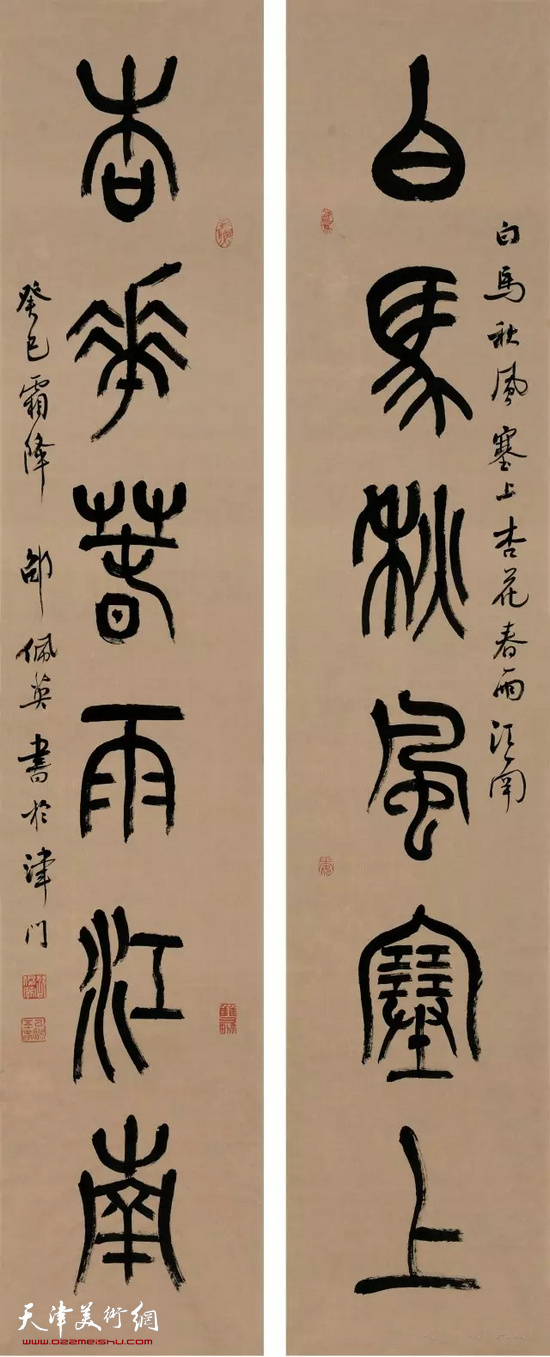 白馬秋風塞上
白馬秋風塞上杏花春雨江南
杏華春雨江南
癸巳霜降 邵佩英書於津門
天津美術網
www.022meishu.com